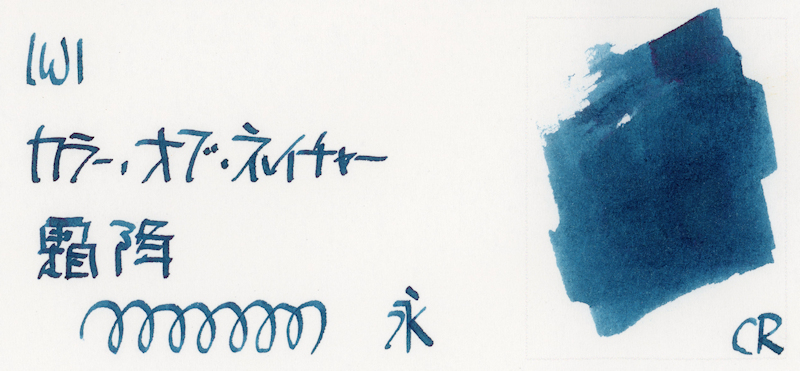 IWI
カラー・オブ・ネイチャー
霜降
永
CR